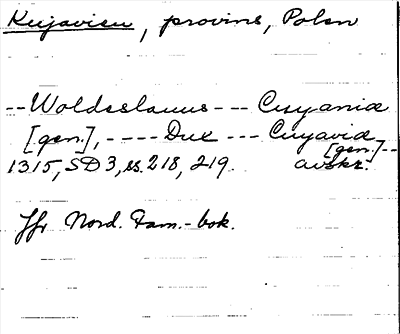 Kujavien, provins, Polen
--Woldeslaus --- Cuyaniæ
[gen.], ---- Dux --- Cuyaviæ
[gen.]--
1315, SD 3, ss. 218, 219. avskr.
Jfr Nord. Fam.-bok.